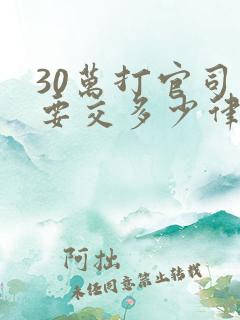 30萬打官司
要交多少律
阿拙
未经同意禁止转载